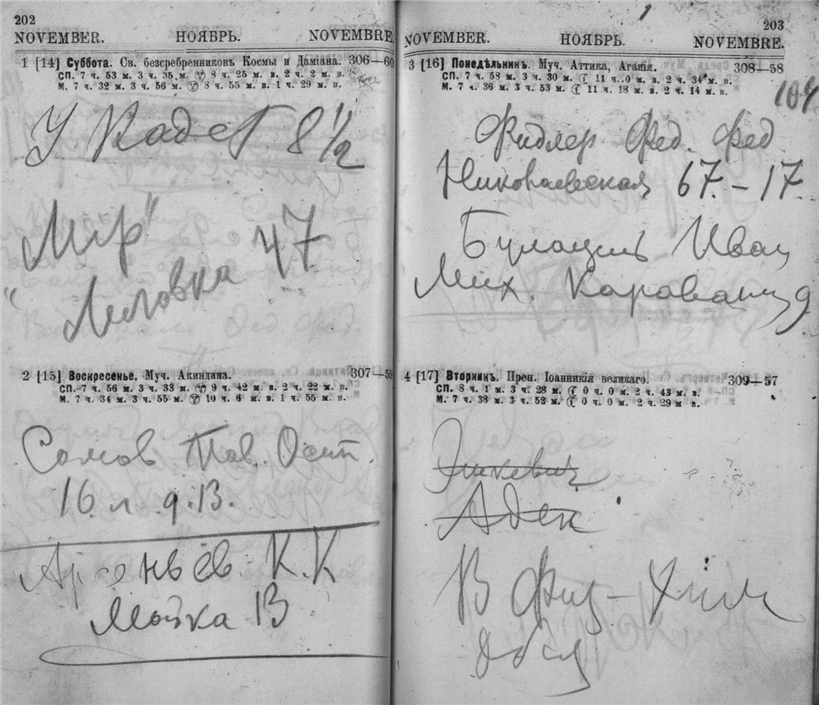 202
NOVEMBER. НОЯБРЬ. NOVEMBRE.
1 [14] Суббота. Св. безсребренниковъ Космы и Даміана. 306—60
СП. 7 ч. 53 м. 3 ч. 35 м. 8 ч. 25 м. в. 2 ч. 2 м. в.
М. 7 ч. 32 м. 3 ч. 56 м. 8 ч. 55 м. в. 1 ч. 29 м. в.
У Кадет 8 1/2
"Мир"
Лиговка 47
2 [15] Воскресенье. Муч. Акиндина. 307—59
СП. 7 ч. 56 м. 3 ч. 33 м. 9 ч. 42 м. в. 2 ч. 22 м. в.
М. 7 ч. 34 м. 3 ч. 55 м. 10 ч. 6 м. в. 1 ч. 55 м. в.
Сомов Вас. Остр.
16 л д. 13.
Арсеньев К. К
Мойка 13
203
NOVEMBER. НОЯБРЬ. NOVEMBRE.
3 [16] Понедѣльникъ. Муч. Аттика, Агапія. 308—58
СП. 7 ч. 58 м. 3 ч. 30 м. 11 ч. 0 м. в. 2 ч. 34 м. в.
М. 7 ч. 36 м. 3 ч. 53 м. 11 ч. 18 м. в. 2 ч. 14 м. в.
104
Фидлер Фед. Фед
Николаевская 67.-17.
Иван
Мих. 9
4 [17] Вторникъ. Преп. Іоанникія великаго. 309—57
СП. 8 ч. 1 м. 3 ч. 28 м. 0 ч. 0 м. 2 ч. 43 м. в.
М. 7 ч. 38 м. 3 ч. 52 м. 0 ч. 0 м. 2 ч. 29 м. в.
Адек
В Физ-Хим